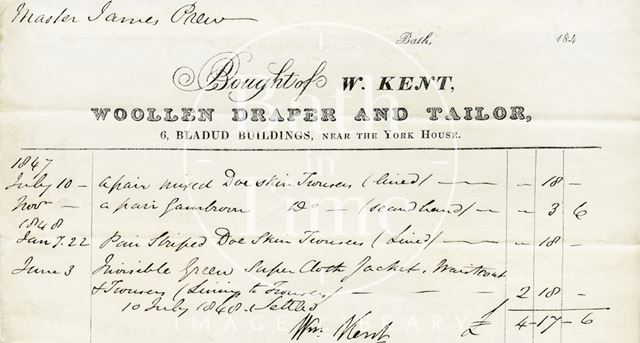 Master James
Bath, 184
Bought of W. KENT,
WOOLLEN DRAPER AND TAILOR,
6, BLADUD BUILDINGS, NEAR THE YORK HOUSE.
1847
July 10 - a pair mixed Doe skin Trousers (lined) — " 18 -
Novr - a pair Gambroon Do - (second hand) - " 3 6
1848
Jany. 22 Pair Striped Doe Skin Trousers (Lined) — " 18 -
June 3 Invisible Green Super Cloth Jacket, Waistcoat
& Trousers (Lining to Trousers) - - 2 18 -
10 July 1848. Settled
Wm. Kent £ 4-17-6
Bath in Time
IMAGE LIBRARY